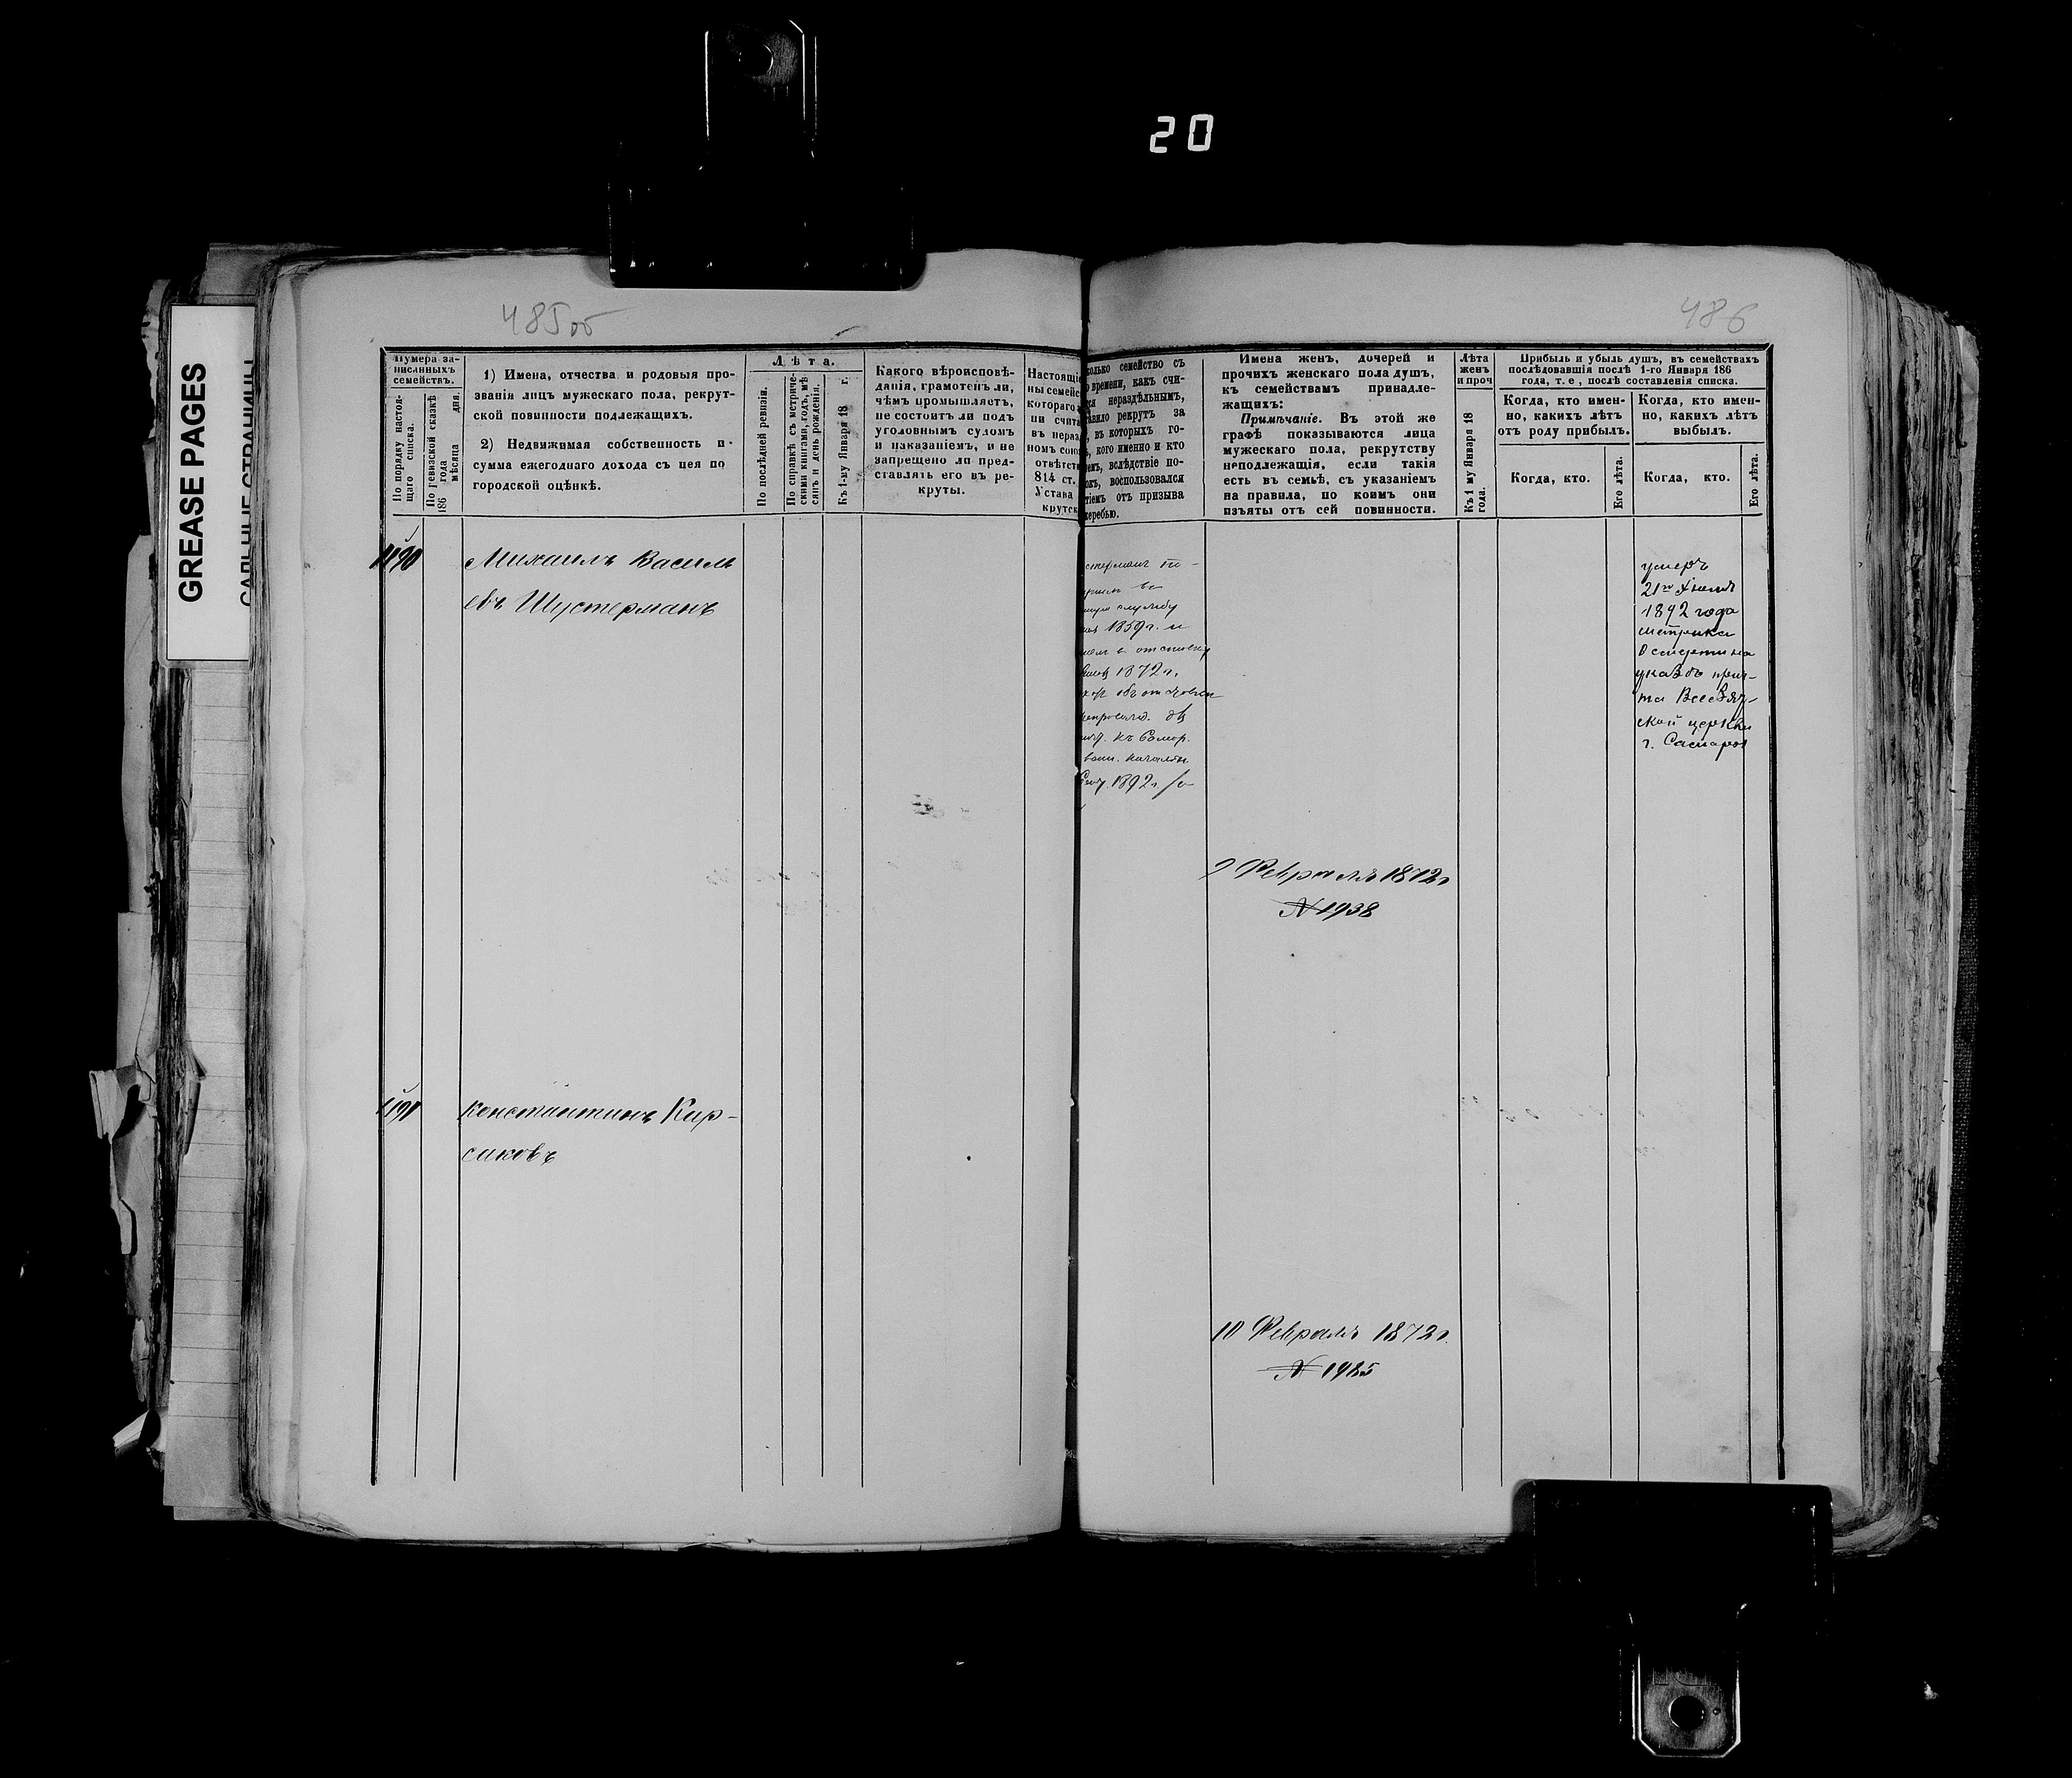 20
GREASE PAGES
САЛЬНЫЕ СТРАНИЦЫ
485об
486
Нумера за-
писанныхъ
семействъ.
По порядку настоя-
щаго списка.
По ревизской сказкѣ
186 года
мѣсяца дня.
1) Имена, отчества и родовыя про-
званія лицъ мужескаго пола, рекрут-
ской повинности подлежащихъ.
2) Недвижимая собственность и
сумма ежегоднаго дохода съ нея по
городской оцѣнкѣ.
Лѣта.
По послѣдней ревизіи.
По справкѣ съ метриче-
скими книгами, годъ, мѣ-
сяцъ и день рожденія.
Къ 1-му Января 18 г.
Какого вѣроисповѣ-
данія, грамотенъ ли,
чѣмъ промышляетъ,
не состоитъ ли подъ
уголовнымъ судомъ
и наказаніемъ, и не
запрещено ли пред-
ставлять его въ ре-
круты.
Настоящі
ны семейс
котораго
ни счита
въ нераз
номъ сою
отвѣтст
814 ст.
Устава
крутск
олько семейство съ
о времени, какъ счи-
ся нераздѣльнымъ,
авило рекрутъ за
, въ которыхъ го-
, кого именно и кто
емъ, вслѣдствіе по-
окъ, воспользовался
тіемъ отъ призыва
жеребью.
Имена женъ, дочерей и
прочихъ женскаго пола душъ,
къ семействамъ принадле-
жащихъ:
Примѣчаніе. Въ этой же
графѣ показываются лица
мужескаго пола, рекрутству
неподлежащія, если такія
есть въ семьѣ, съ указаніемъ
на правила, по коимъ они
изъяты отъ сей повинности.
Лѣта
женъ
и проч
Къ 1 му Января 18
года.
Прибыль и убыль душъ, въ семействахъ
послѣдовавшія послѣ 1-го Января 186
года, т. е., послѣ составленія списка.
Когда, кто имен-
но, какихъ лѣтъ
отъ роду прибылъ.
Когда, кто.
Его лѣта.
Когда, кто имен-
но, какихъ лѣтъ
выбылъ.
Когда, кто.
Его лѣта.
1190
Михаилъ Василь
евъ Шустерманъ
стерманъ по-
службу
1859г. и
въ отставку
1872г.
объ отставкѣ
къ Самар.
воин. начальн
1892г. за
умеръ
21го Іюня
1892 года
метрика
о смерти на
указѣ прич-
та Всесвят-
ской церкви
г. Самары
9 Февраля 1872г
№ 1938
1191
Константинъ Кир-
саковъ
10 Февраля 1872г.
№ 1985